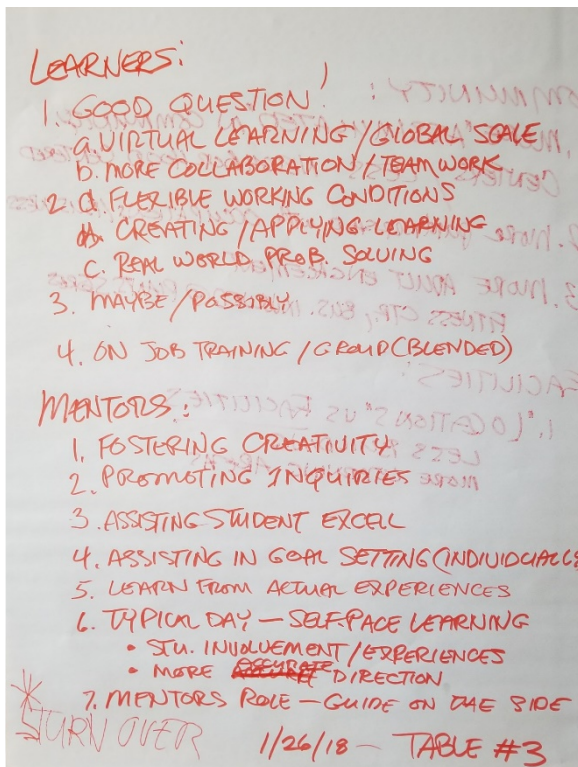 LEARNERS:
1. GOOD QUESTION!
a. VIRTUAL LEARNING / GLOBAL SCALE
b. MORE COLLABORATION / TEAMWORK
2. a. FLEXIBLE WORKING CONDITIONS
b. CREATING / APPLYING LEARNING
C. REAL WORLD PROB. SOLVING
3. MAYBE / POSSIBLY
4. ON JOB TRAINING / GROUP (BLENDED)
MENTORS:
1. FOSTERING CREATIVITY
2. PROMOTING INQUIRIES
3. ASSISTING STUDENT EXCELL
4. ASSISTING IN GOAL SETTING (INDIVIDUALLY
5. LEARN FROM ACTUAL EXPERIENCES
6. TYPICAL DAY — SELF-PACE LEARNING
• STU. INVOLVEMENT / EXPERIENCES
• MORE DIRECTION
7. MENTORS ROLE — GUIDE ON THE SIDE
* TURN OVER
1/26/18 — TABLE #3